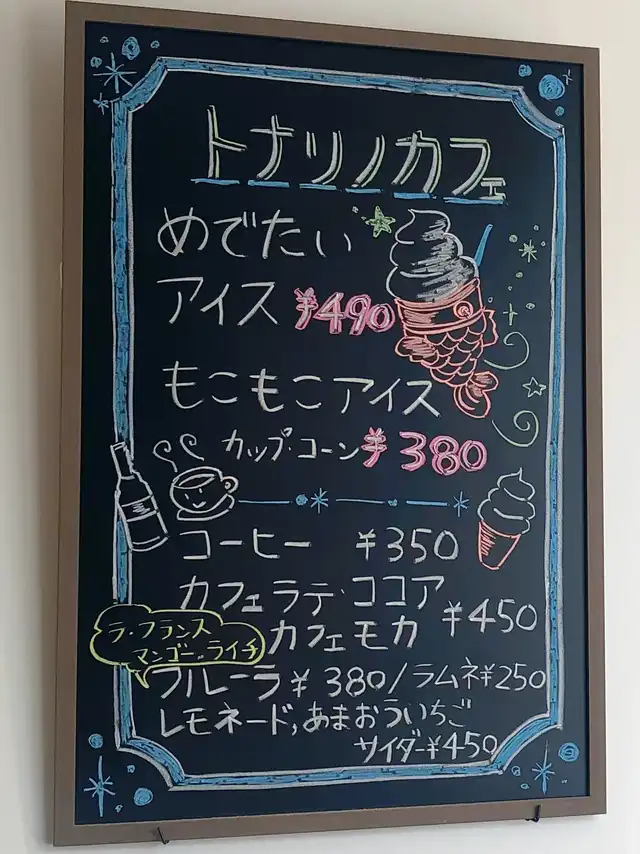 トナリノカフェ
めでたい
アイス ¥490
もこもこアイス
カップ・コーン ¥380
コーヒー ¥350
カフェラテ・ココア
カフェモカ ¥450
ラ・フランス
マンゴー、ライチ
フルーラ ¥380/ラムネ¥250
レモネード,あまおういちご
サイダー¥450